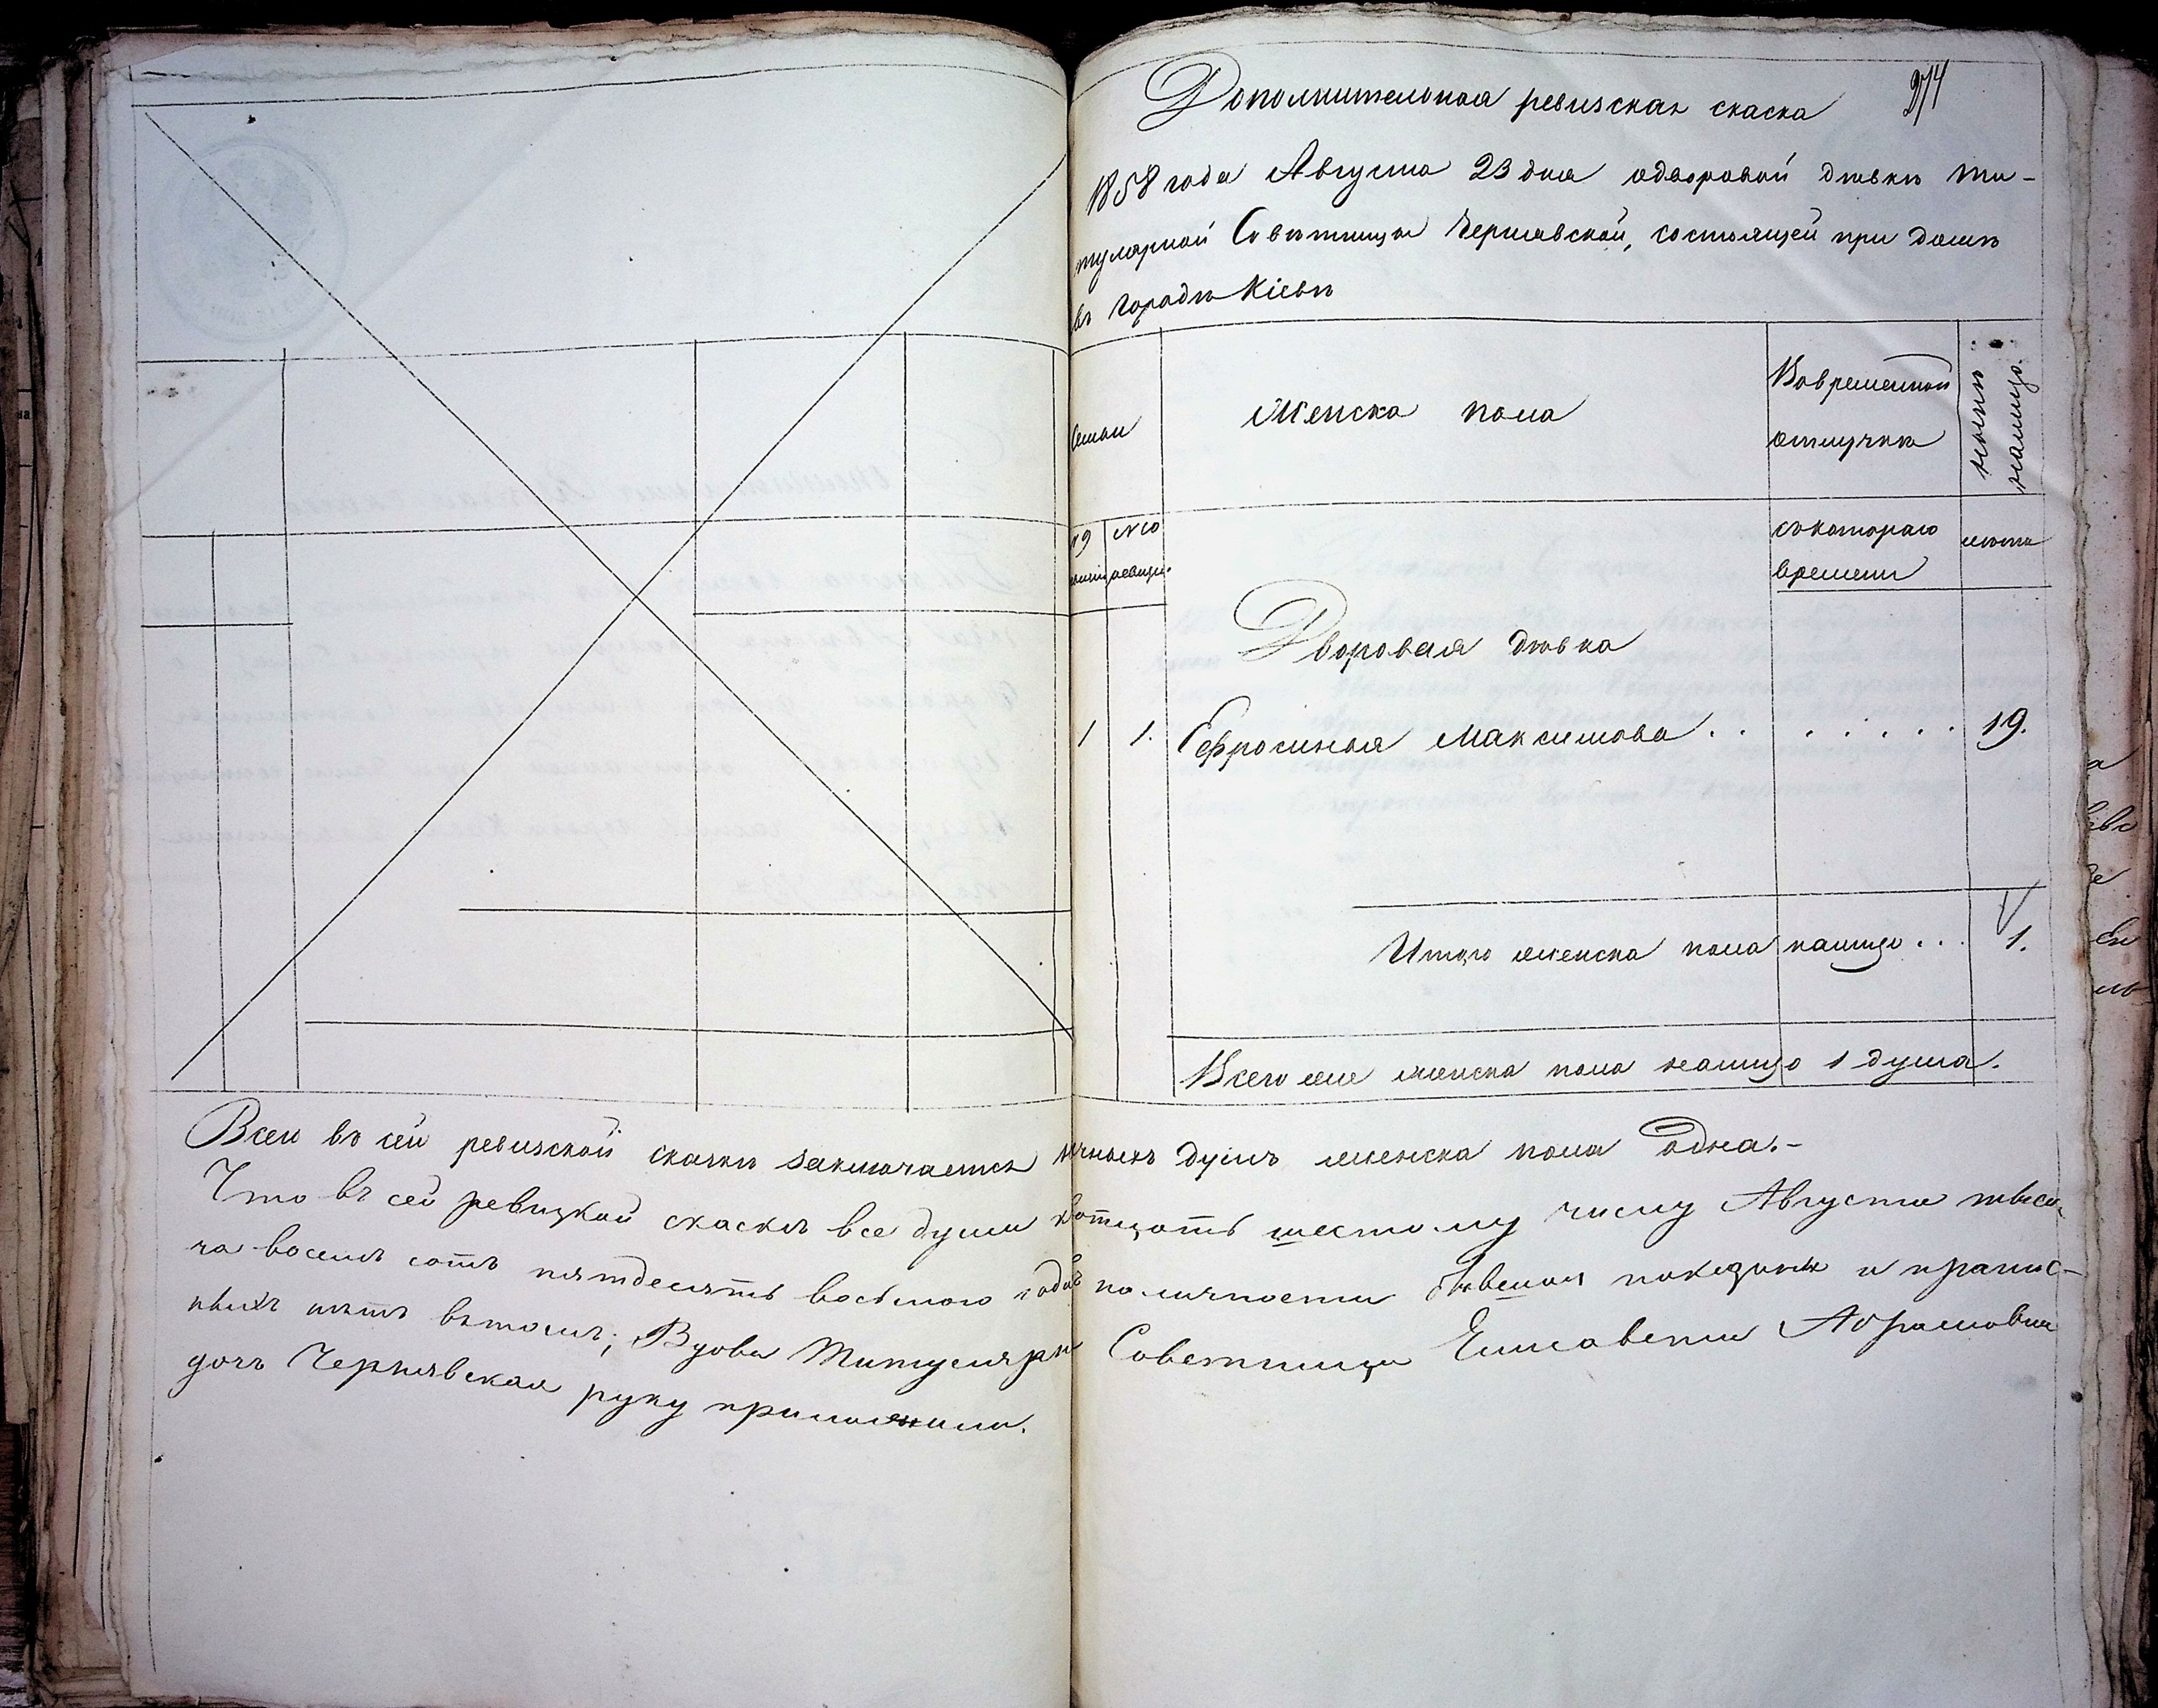 Дополнительная ревизская скаска
1858 года Августа 23 дня одворовой девке ти-
тулярной Советницы Чернявской, состоящей при доме
въ городе Кіеве
Семьи
Женска пола
Вовременной отлучке
ныне на лицо.
съкотораго времени
лета
Дворовая девка
1 1. Ефросинья Максимова . . . . . . . 19.
Итого женска пола налицо . . . 1.
Всего же женска пола налицо 1 душа.
Всего въ сей ревизской скаске заключается душъ женска пола одна.-
Что въ сей ревизкой скаске все души шестому числу Августа тыся-
ча восемъ сотъ пятдесять восьмого года по личности показаны и пропис-
ныхъ нетъ въ томъ; Вдова Титулярн Советница Елисавета Абрамовна
дочь Чернявская руку приложила.